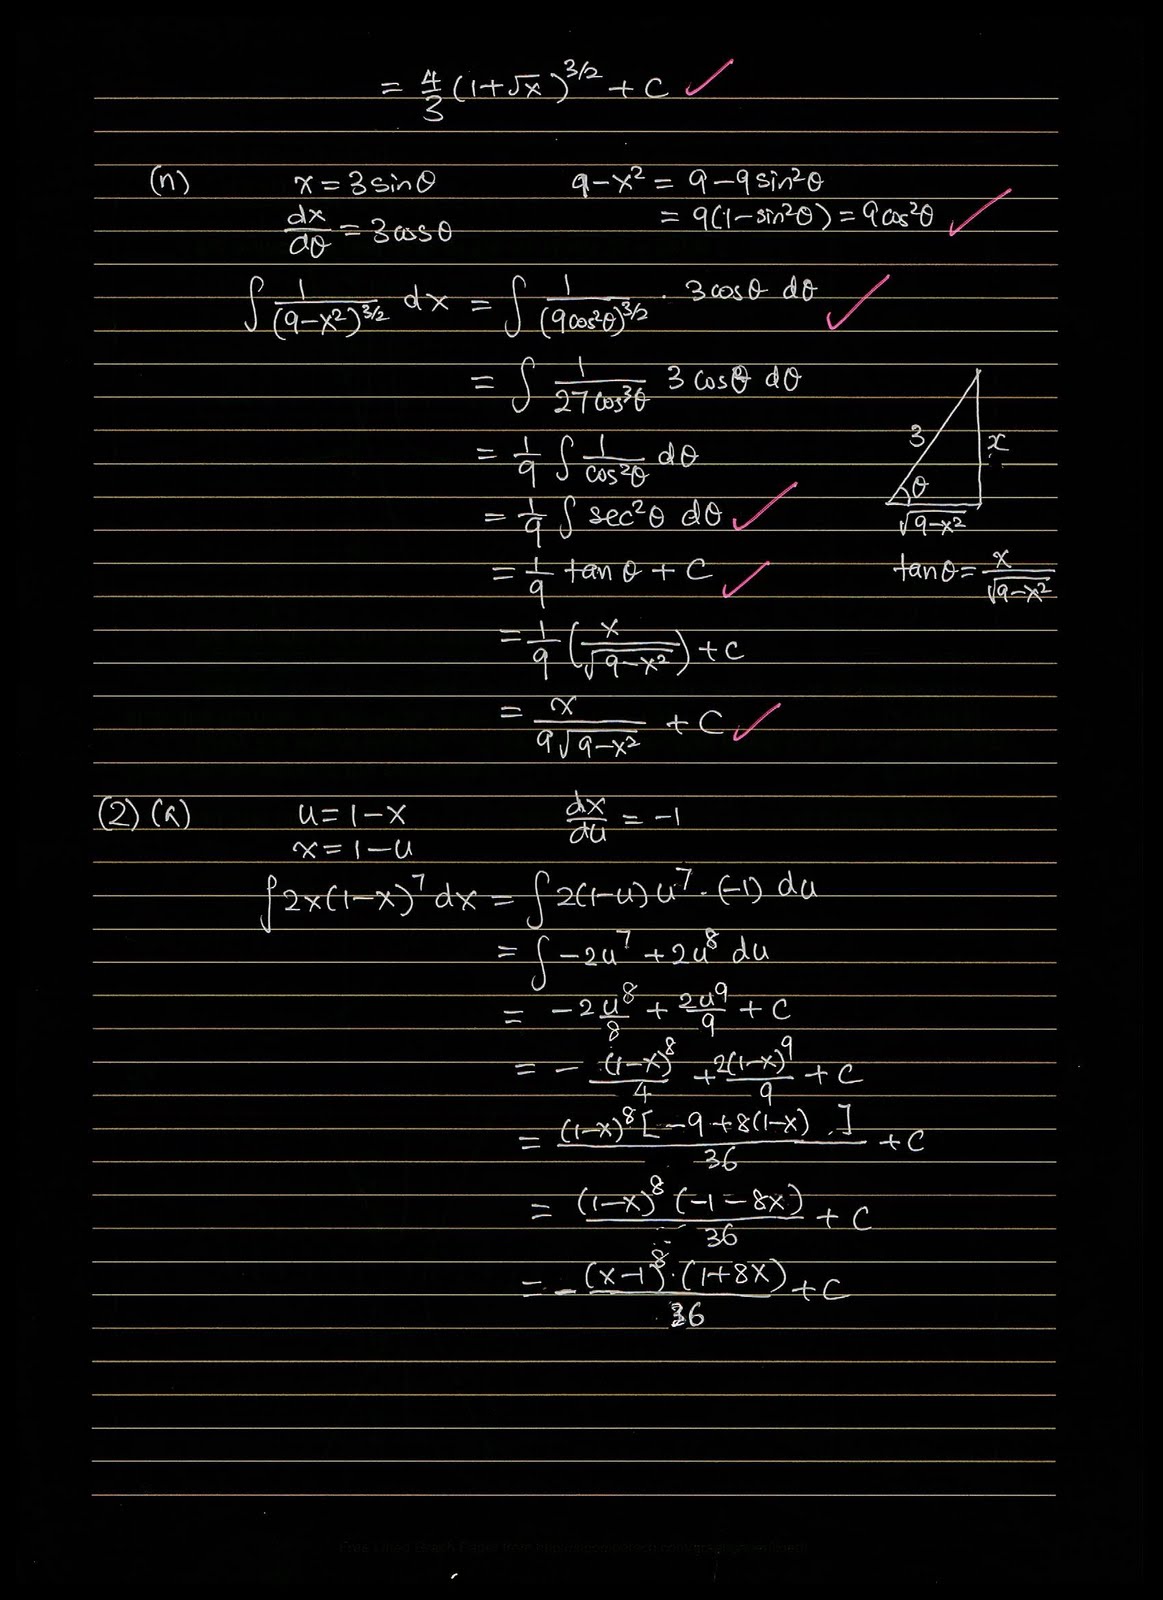 = 4/3 (1+√x)^3/2 + C ✓
(n) x = 3 sinθ 9-x² = 9-9sin²θ
dx/dθ = 3cosθ = 9(1-sin²θ) = 9cos²θ ✓
∫ 1/(9-x²)^3/2 dx = ∫ 1/(9cos²θ)^3/2 · 3cosθ dθ ✓
= ∫ 1/27cos³θ 3 cosθ dθ
3 x
= 1/9 ∫ 1/cos²θ dθ
θ
= 1/9 ∫ sec²θ dθ ✓ √9-x²
= 1/9 tanθ + C ✓ tanθ = x/√9-x²
= 1/9 (x/√9-x²) + C
= x/9√9-x² + C ✓
(2) (a) u = 1-x dx/du = -1
x = 1-u
∫2x(1-x)⁷ dx = ∫2(1-u)u⁷·(-1) du
= ∫ -2u⁷ + 2u⁸ du
= -2u⁸/8 + 2u⁹/9 + C
= - (1-x)⁸/4 + 2(1-x)⁹/9 + C
= (1-x)⁸[-9+8(1-x)]/36 + C
= (1-x)⁸(-1-8x)/36 + C
= - (x-1)⁸·(1+8x)/36 + C